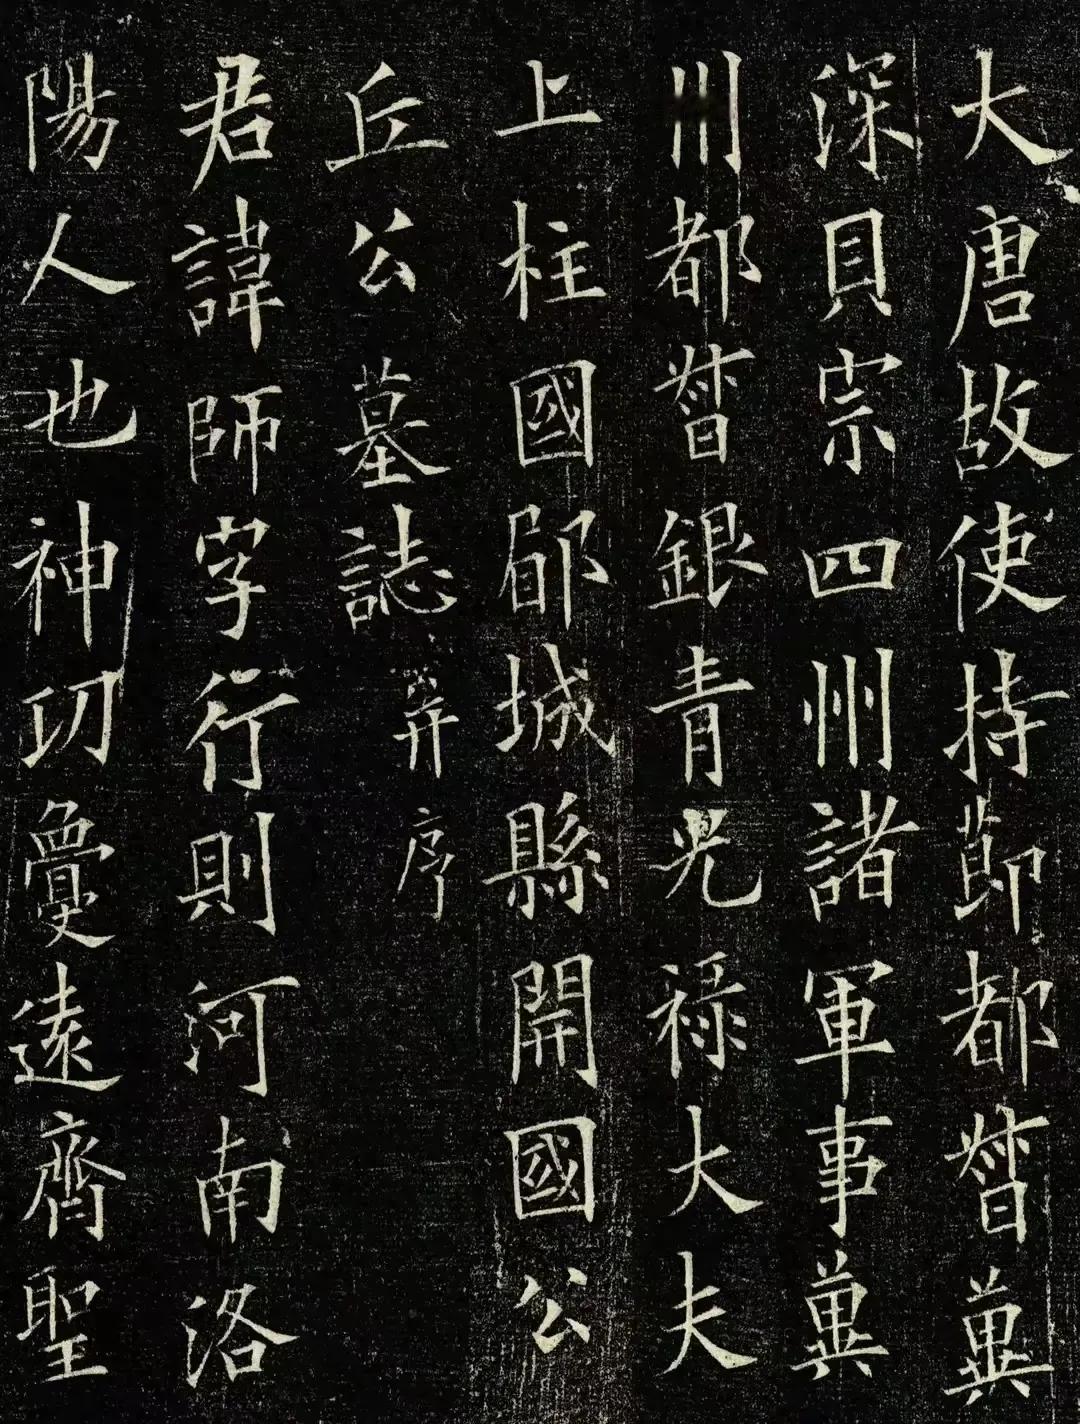 大唐故使持節都督冀
深貝宗四州諸軍事冀
州都督銀青光祿大夫
上柱國郿城縣開國公
丘公墓誌并序
君諱師字行則河南洛
陽人也神功夐遠齊聖